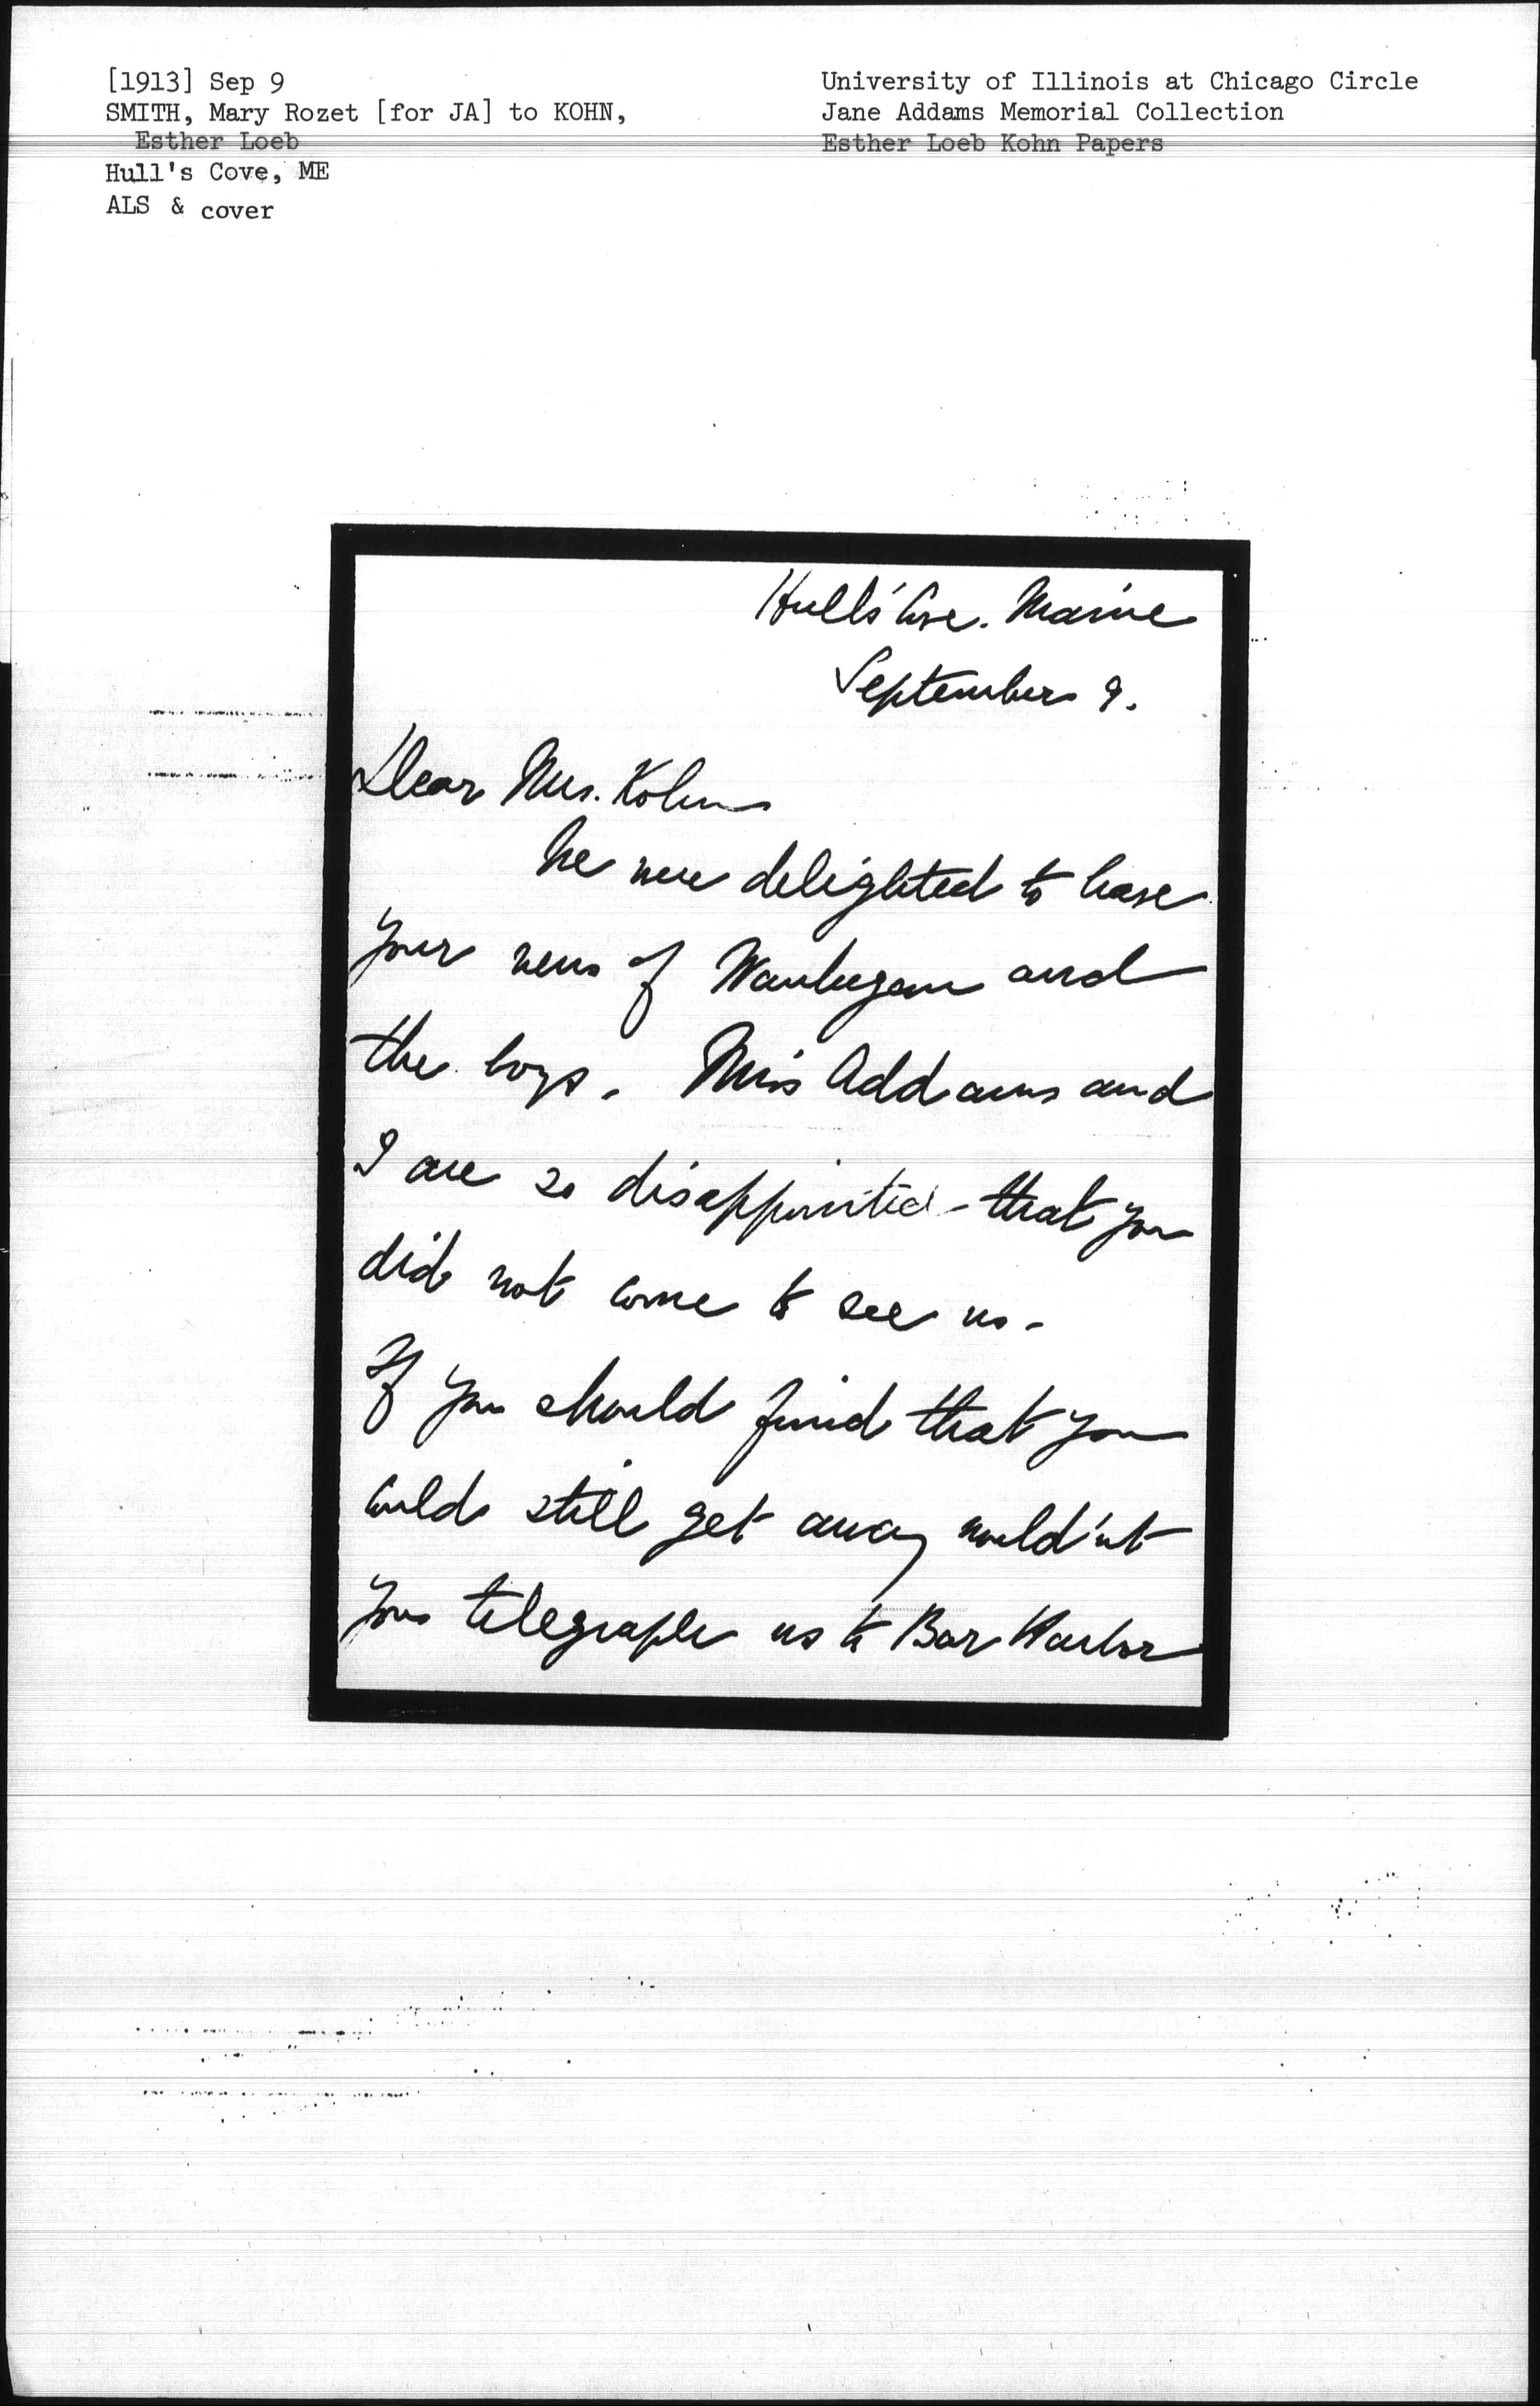 [1913] Sep 9
SMITH, Mary Rozet [for JA] to KOHN,
Esther Loeb
Hull's Cove, ME
ALS & cover
University of Illinois at Chicago Circle
Jane Addams Memorial Collection
Esther Loeb Kohn Papers
Hulls' Cove. Maine
September 9.
Dear Mrs. Kohn
We were delighted to have
your news of Waukegan and
the boys. Miss Addams and
I are so disappointed that you
did not come to see us.
If you should find that you
could still get away would'nt
you telegraph us to Bar Harbor